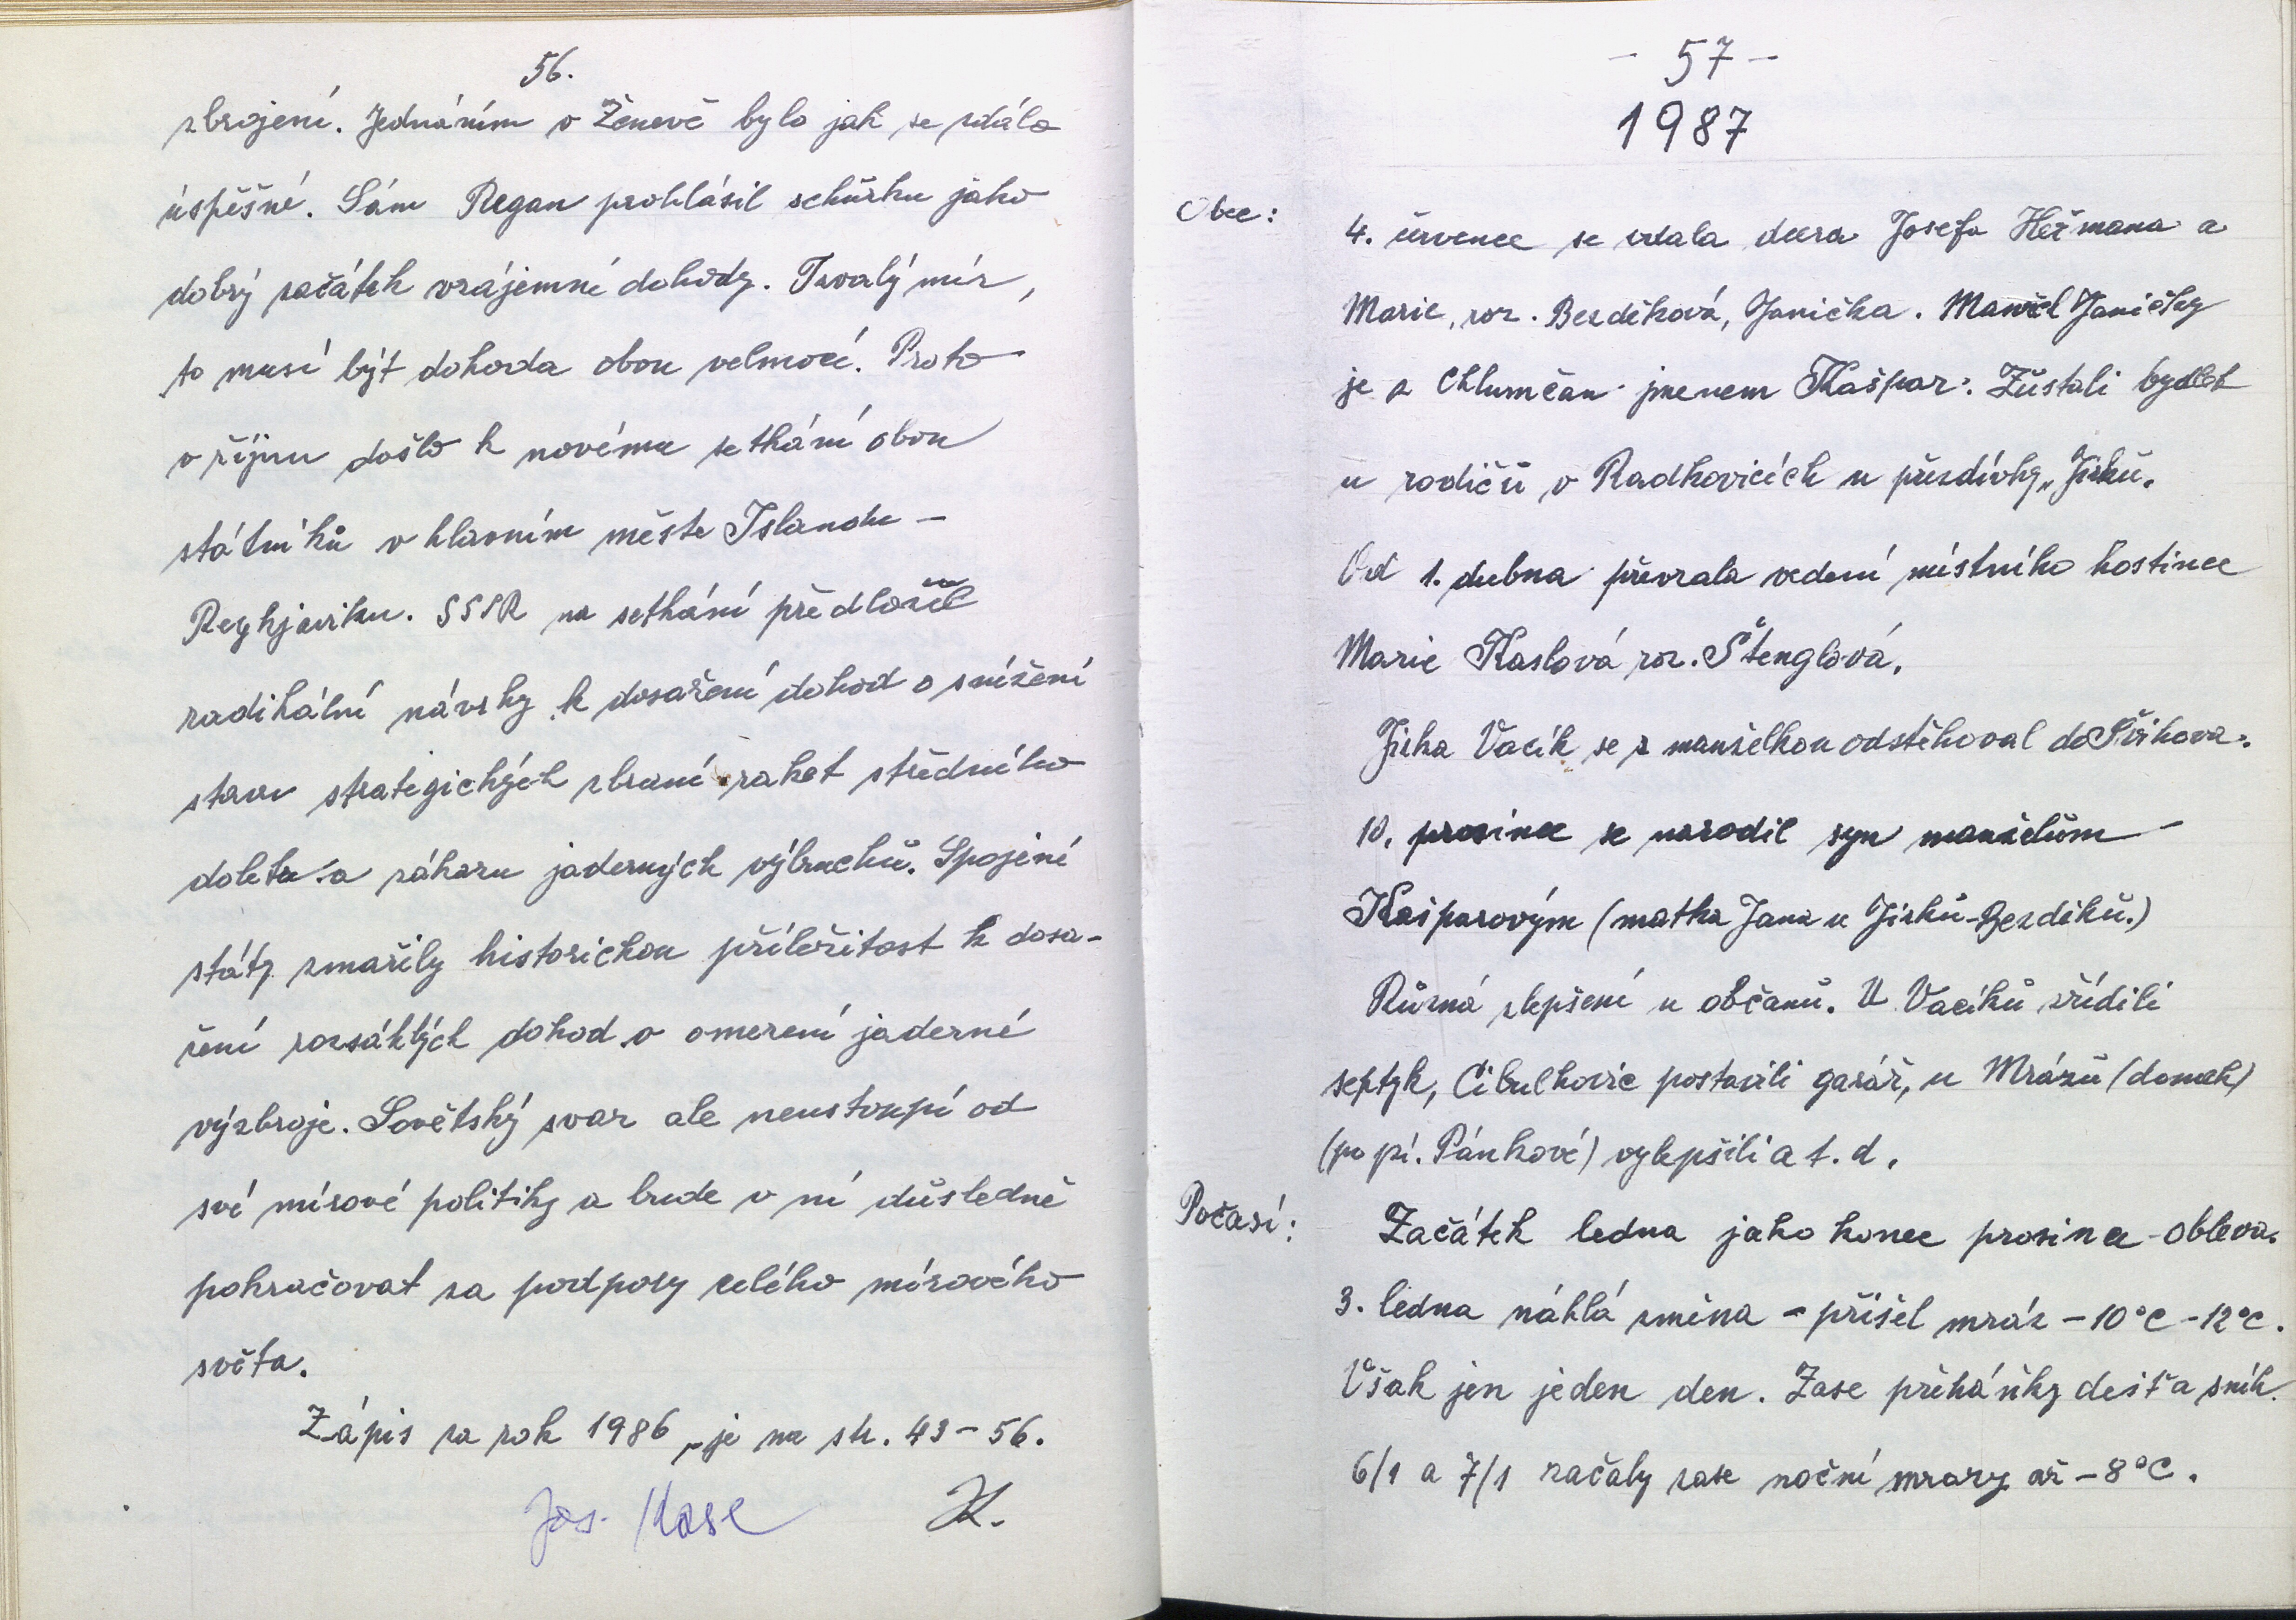 56.
zbrojení. Jednáním v Ženevě bylo jak se zdálo
úspěšné. Sám Regan prohlásil schůzku jako
dobrý začátek vzájemné dohody. Trvalý mír,
to musí být dohoda obou velmocí. Proto
v říjnu došlo k novému setkání obou
státníků v hlavním měste Islandu –
Reykjaviku. SSSR na setkání předložil
radikální návrhy k dosažení dohod o snížení
stavu strategických zbraní raket středního
doletu a zákazu jaderných výbuchů. Spojené
státy zmařily historickou příležitost k dosa-
žení rozsáhlých dohod o omezení jaderné
výzbroje. Sovětský svaz ale neustoupí od
své mírové politiky a bude v ní důsledně
pokračovat za podpory celého mírového
světa.
Zápis za rok 1986 je na str. 43 – 56.
Jos. Kasl K.
– 57 –
1987
Obec:
4. července se vdala dcera Josefa Heřmana a
Marie, roz. Bezděková, Janička. Manžel Janičky
je z Chlumčan jmenem Kašpar. Zůstali bydlet
u rodičů v Radkovicích u přezdívky „Jirků„
Od 1. dubna převzala vedení místního hostince
Marie Kaslová roz. Štenglová.
Jirka Vacík se s manželkou odstěhoval do Příkova.
10. prosince se narodil syn manželům
Kašparovým (matka Jana u Jirků-Bezděků.)
Různá zlepšení u občanů. U Vacíků zřídili
septyk, Cibulkovic postavili garáž, u Mrázů (domek)
(po pí. Pánkové) vylepšili a t. d.
Počasí:
Začátek ledna jako konec prosince - obleva.
3. ledna náhlá změna – přišel mráz – 10°C - 12°C.
Však jen jeden den. Zase přeháňky dešť a sníh.
6/1 a 7/1 začaly zase noční mrazy až – 8°C.